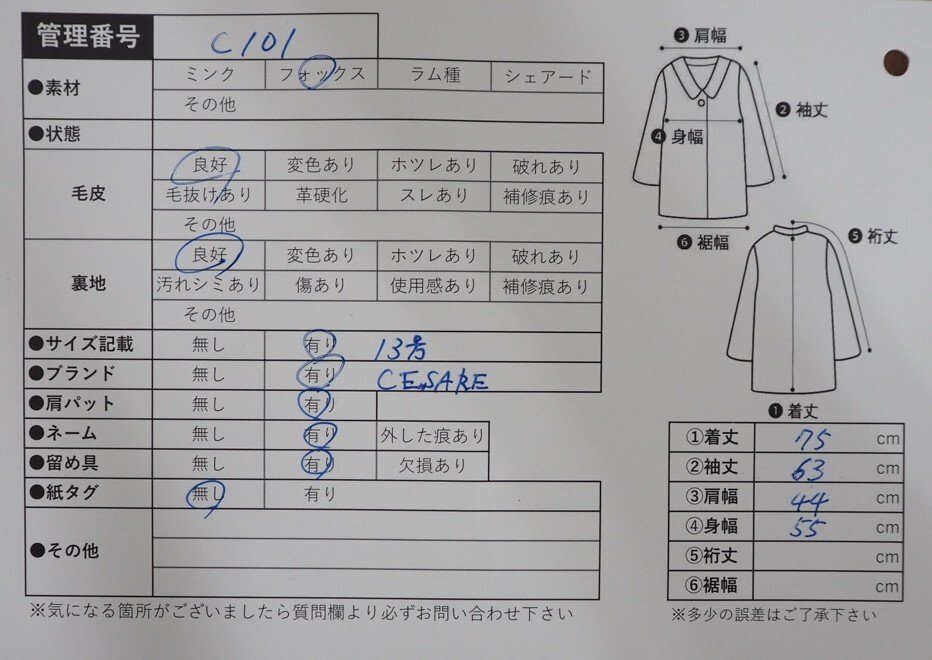 管理番号 C101
●素材 ミンク フォックス ラム種 シェアード
その他
●状態
毛皮 良好 変色あり ホツレあり 破れあり
毛抜けあり 革硬化 スレあり 補修痕あり
その他
裏地 良好 変色あり ホツレあり 破れあり
汚れシミあり 傷あり 使用感あり 補修痕あり
その他
●サイズ記載 無し 有り 13号
●ブランド 無し 有り CESARE
●肩パット 無し 有り
●ネーム 無し 有り 外した痕あり
●留め具 無し 有り 欠損あり
●紙タグ 無し 有り
●その他
※気になる箇所がございましたら質問欄より必ずお問い合わせ下さい
❸肩幅
❷袖丈
❹身幅
❻裾幅
❺裄丈
❶着丈
①着丈 75 cm
②袖丈 63 cm
③肩幅 44 cm
④身幅 55 cm
⑤裄丈 cm
⑥裾幅 cm
※多少の誤差はご了承下さい